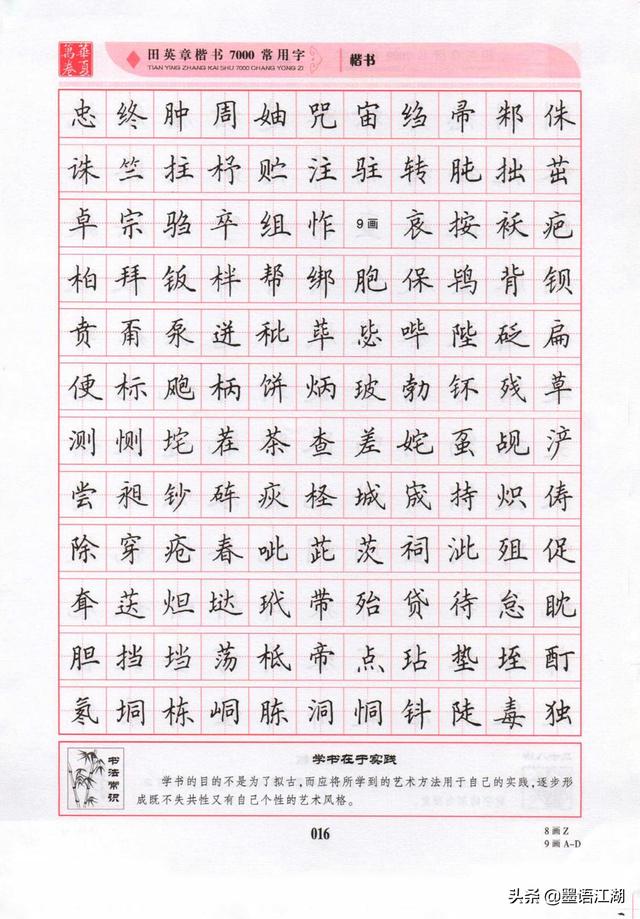 華夏萬卷
田英章楷书7000常用字
TIAN YING ZHANG KAI SHU 7000 CHANG YONG ZI
楷书
忠终肿周妯咒宙绉帚邾侏
诛竺拄杼贮注驻转肫拙茁
卓宗驺卒组怍9画哀按袄疤
柏拜钣柈帮绑胞保鸨背钡
贲甭泵迸秕荜毖哔陛砭扁
便标飑柄饼炳玻勃钚残草
测恻垞茬茶查差姹虿觇浐
尝昶钞砗疢柽城宬持炽俦
除穿疮春呲茈茨祠泚殂促
耷荙炟垯玳带殆贷待怠眈
胆挡垱荡柢帝点玷垫垤酊
氡垌栋峒胨洞恫钭陡毒独
书法常识
学书在于实践
学书的目的不是为了拟古,而应将所学到的艺术方法用于自己的实践,逐步形
成既不失共性又有自己个性的艺术风格。
016
8画Z
9画A-D
头条@墨语江湖